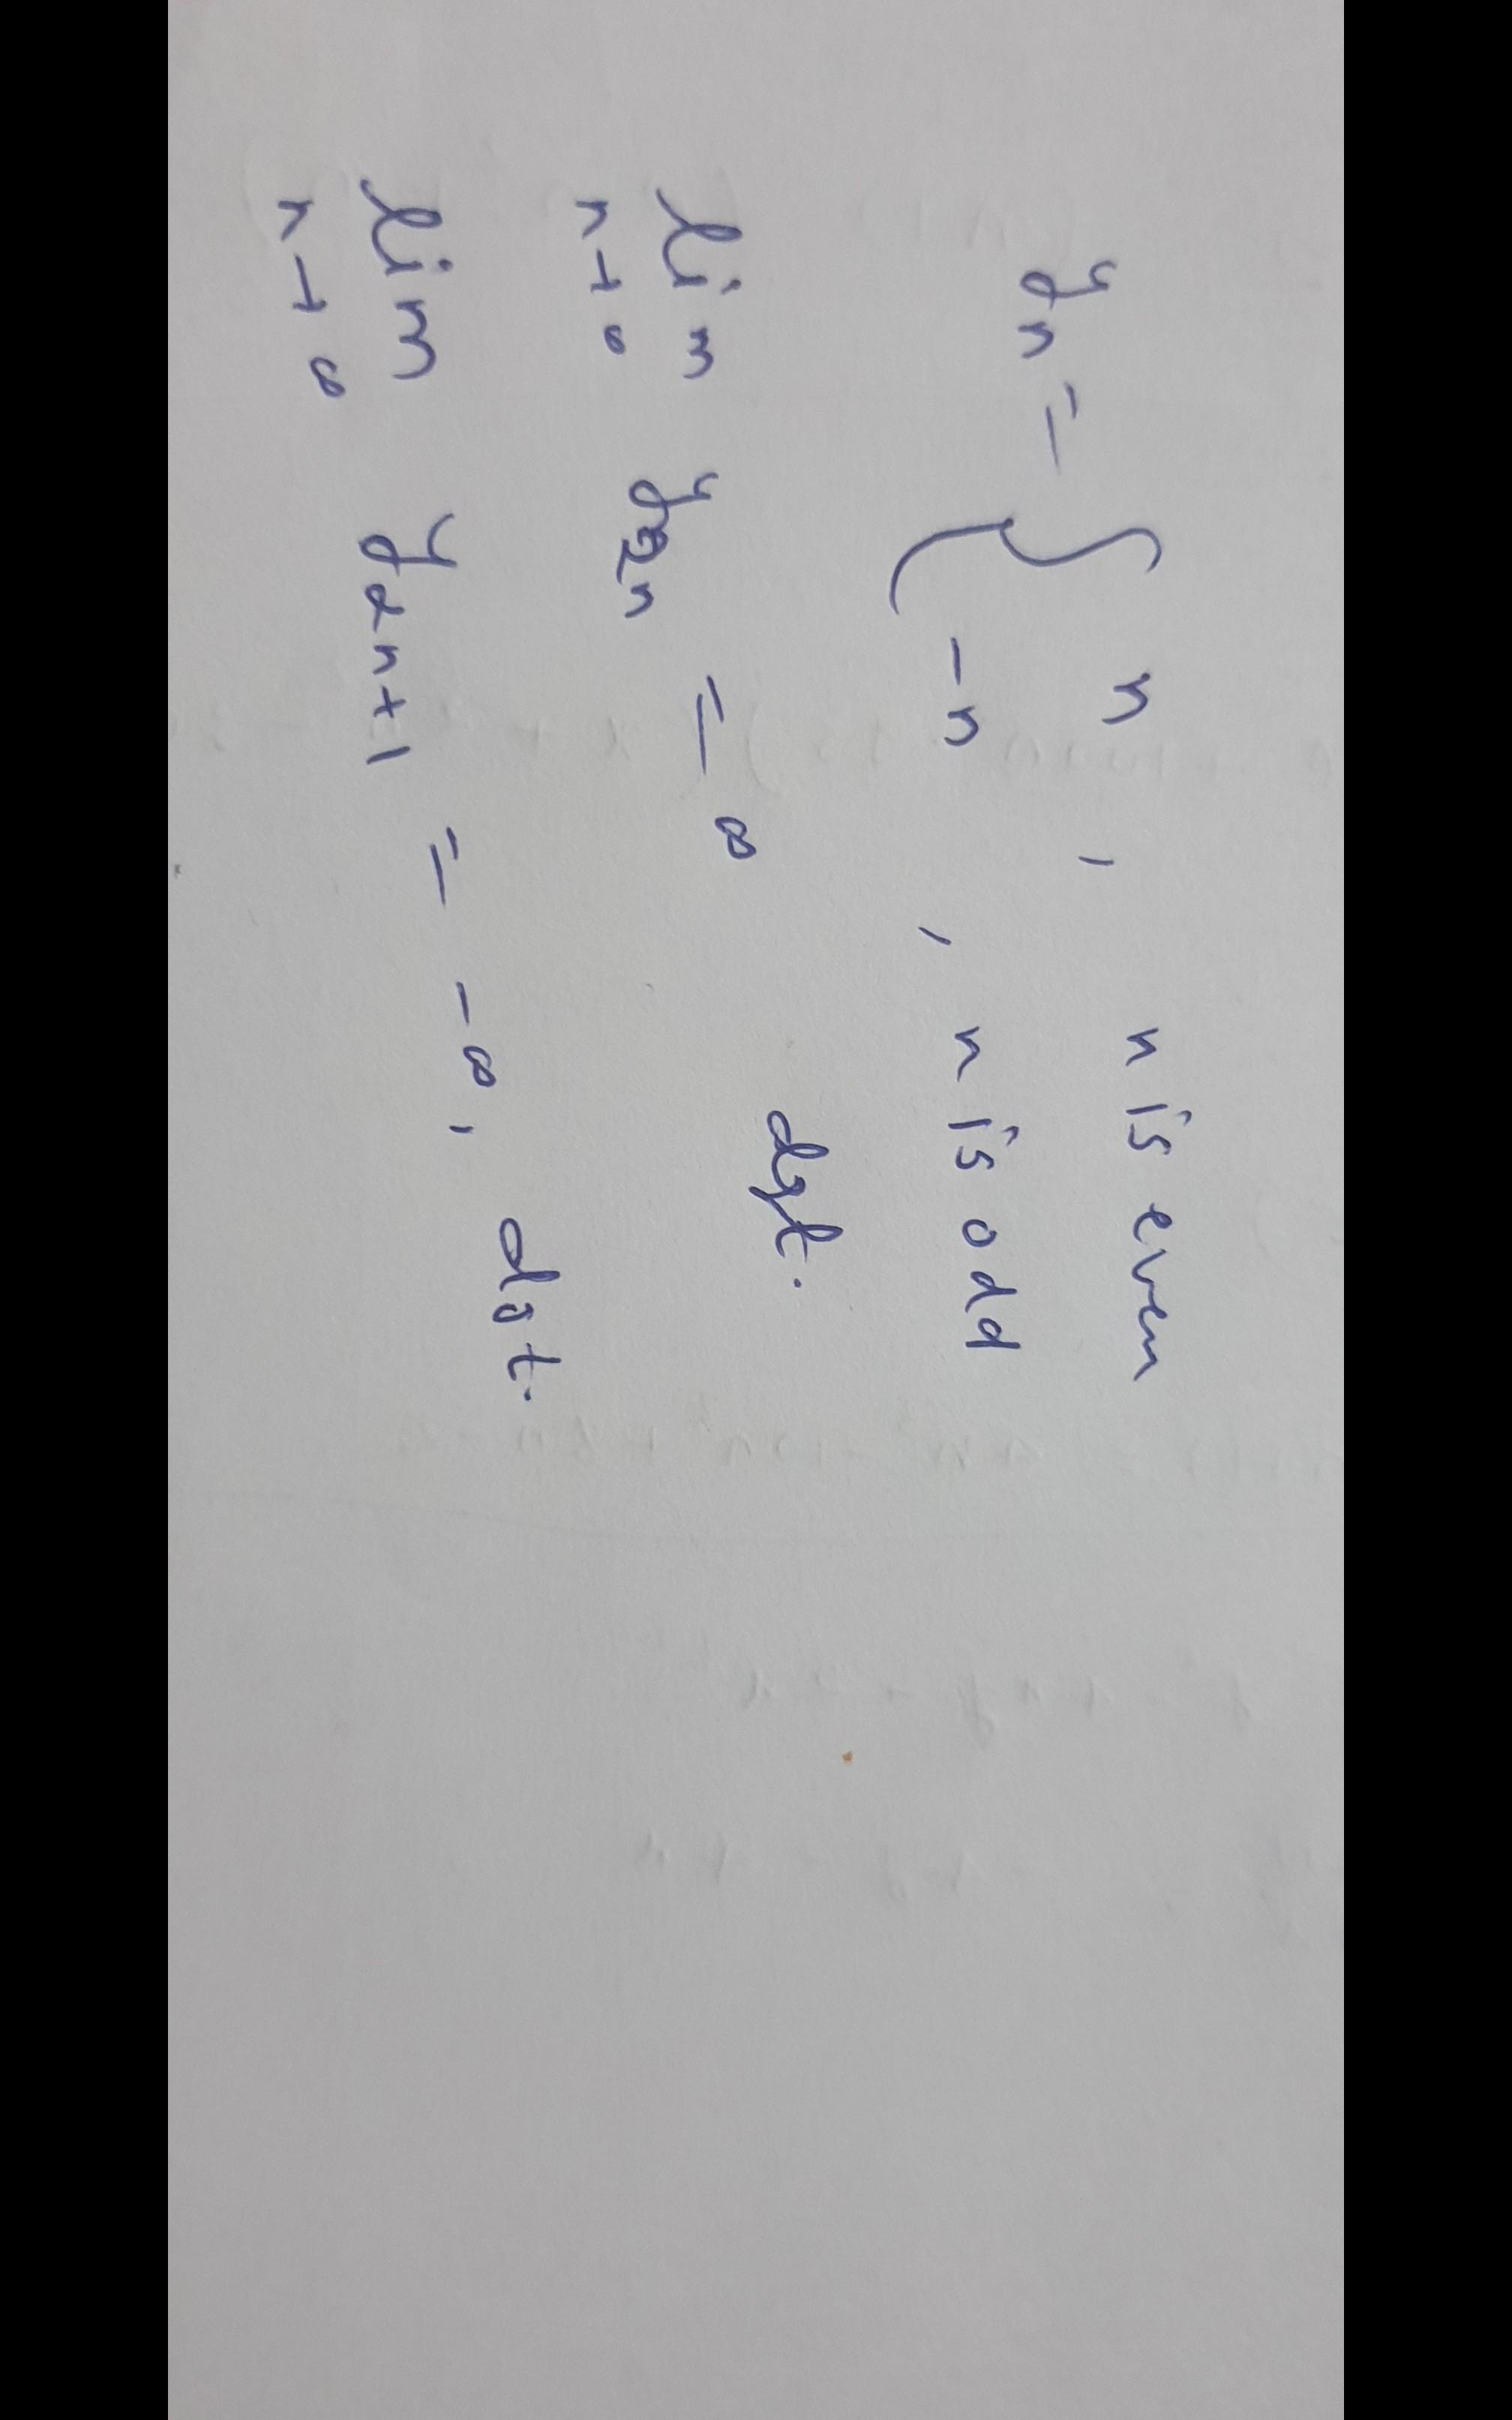 yₙ = { n , n is even
-n , n is odd
lim n→∞ y₂ₙ = ∞ dgt.
lim n→∞ y₂ₙ₊₁ = -∞, dgt.